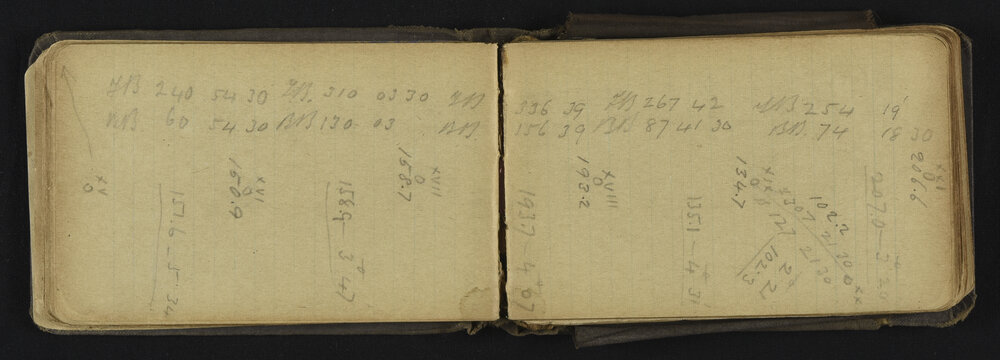 FB 240 54 30 FB. 310 03 30 FB 336 39 FB 267 42 FB 254 19
BB. 60 54 30 BB 130 03 BB. 156 39 BB 87 41 30 BB. 74 18 30
XV
0
XVI
0
150.9
151.6 - 5° 34
XVII
0
158.7
158.9 - 3° 47
XVIII
0
193.2
193.7 4° 07
XIX
0
134.7
135.1 - 4° 31
XX
102.2
102.3
XXI
0
206.6
207.0 - 3°